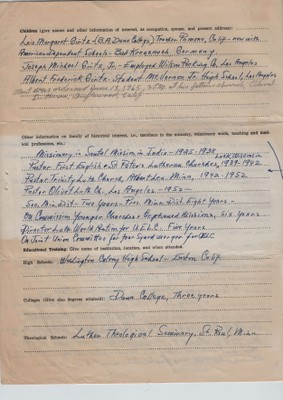 Children (give names and other information of interest, as occupation, spouse, and present address):
Lois Margaret Girtz (B.A. Dana College) Teacher Pomona, Calif - now with
American Dependent Schools - Bad Kreuznach, Germany.
Joseph Michael Girtz, Jr. - Employed Wilson Packing Co. Los Angeles
Albert Frederick Girtz - Student Mt. Vernon Jr. High School, Los Angeles
Other information on family of historical interest, i.e., relatives in the ministry, missionary work, teaching and medical professions, etc.:
Missionary in Santal Mission in India - 1925-1938
Pastor First English and St Peters Lutheran Churches, 1939-1942
Pastor Trinity Luth Church, Albert Lea, Minn, 1942-1952
Pastor Olivet Luth Co. Los Angeles - 1952 -
Sec. Minn Dist - Two years - Pres. Minn Dist Eight years -
On Commission Younger Churches & Orphaned Missions, six years
Director Luth World Action for U.E.L.C. Five years
On Joint Union Committee for four years
Educational Training: Give name of institution, location, and when attended.
High School: Washington Colony High School - Easton Calif
Colleges (Give also degrees attained): Dana College, Three years
Theological Schools: Luther Theological Seminary, St. Paul, Minn